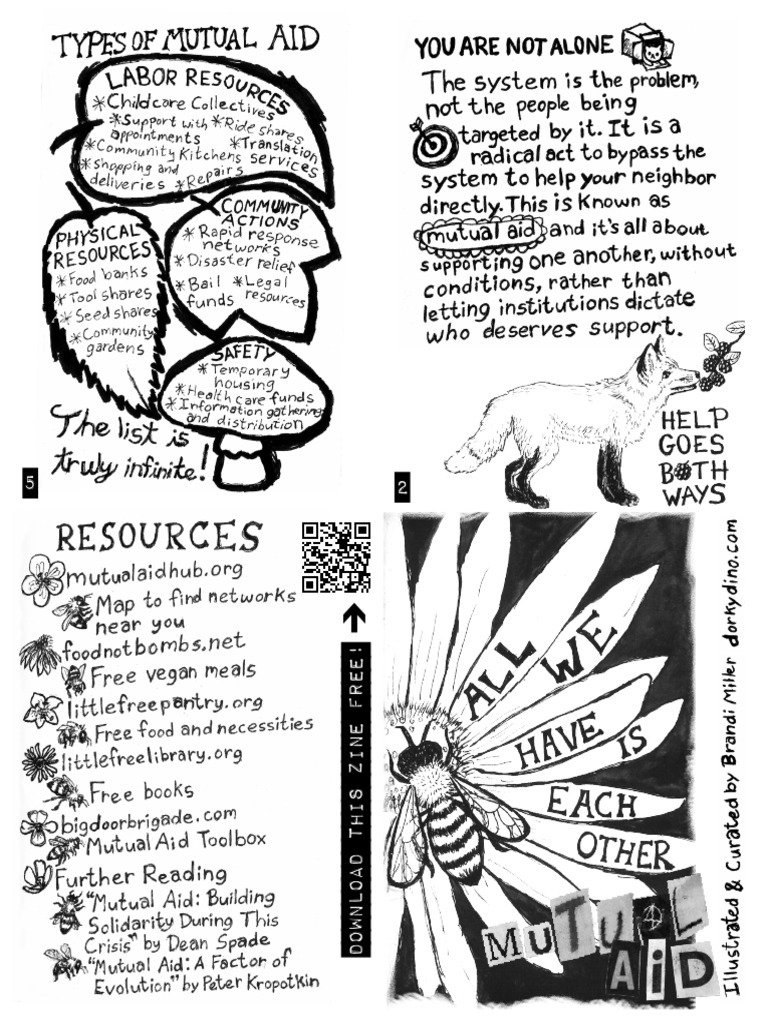 TYPES OF MUTUAL AID
LABOR RESOURCES
*Childcare Collectives
*Support with appointments
*Ride shares
*Translation services
*Community Kitchens
*Shopping and deliveries
*Repairs
COMMUNITY
ACTIONS
*Rapid response
networks
*Disaster relief
*Bail funds
*Legal resources
PHYSICAL
RESOURCES
*Food banks
*Tool shares
*Seed shares
*Community
gardens
SAFETY
*Temporary
housing
*Healthcare funds
*Information gathering
and distribution
The list is
truly infinite!
5
YOU ARE NOT ALONE
The system is the problem,
not the people being
targeted by it. It is a
radical act to bypass the
system to help your neighbor
directly. This is known as
mutual aid and it's all about
supporting one another, without
conditions, rather than
letting institutions dictate
who deserves support.
HELP
GOES
BOTH
WAYS
2
RESOURCES
mutualaidhub.org
Map to find networks
near you
foodnotbombs.net
Free vegan meals
littlefreepantry.org
Free food and necessities
littlefreelibrary.org
Free books
bigdoorbrigade.com
Mutual Aid Toolbox
Further Reading
"Mutual Aid: Building
Solidarity During This
Crisis" by Dean Spade
"Mutual Aid: A Factor of
Evolution" by Peter Kropotkin
DOWNLOAD THIS ZINE FREE!
ALL WE
HAVE IS
EACH
OTHER
MUTUAL
AiD
Illustrated & Curated by Brandi Miller dorkydino.com